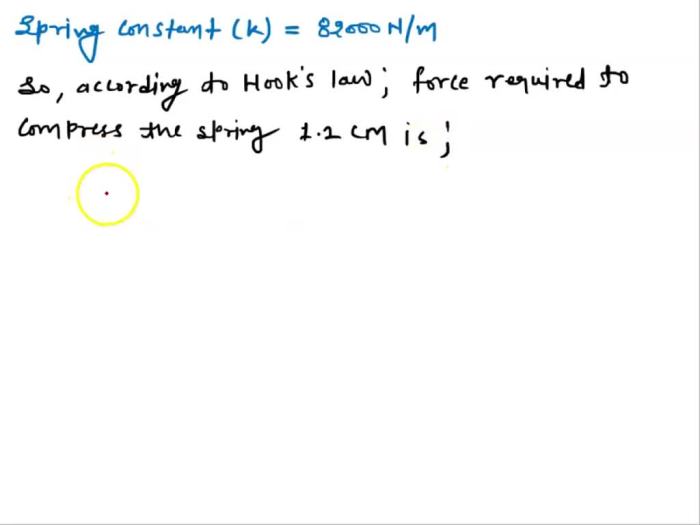 Spring constant (k) = 82000 N/m
So, according to Hook's law; force required to
compress the spring 1.2 cm is;